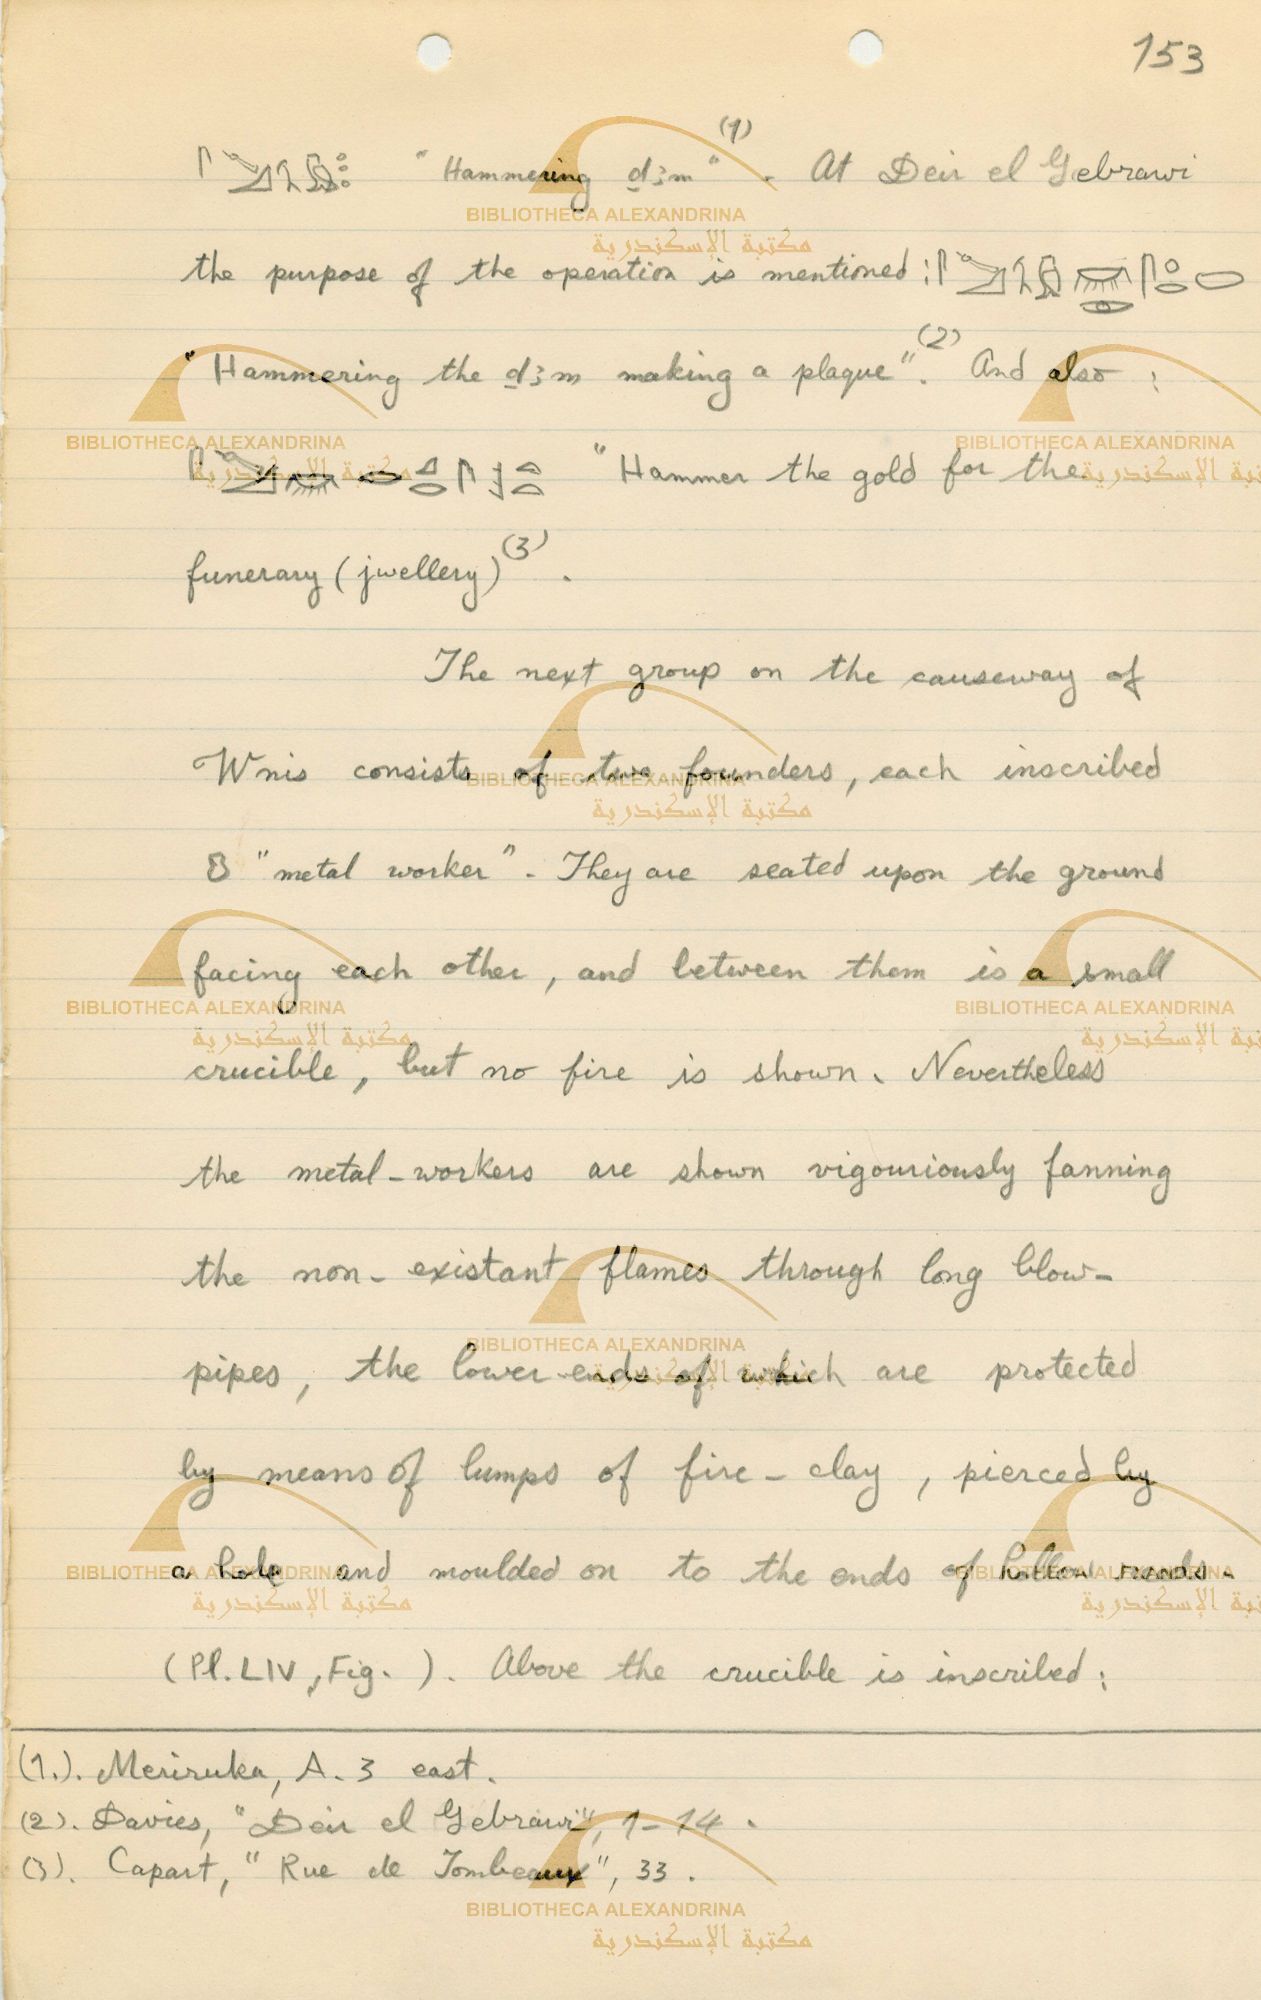 153
"Hammering d3m"(1). At Deir el Gebrawi
the purpose of the operation is mentioned :
"Hammering the d3m making a plaque"(2). And also :
"Hammer the gold for the
funerary (jwellery)(3).
The next group on the causeway of
Wnis consists of two founders, each inscribed
"metal worker". They are seated upon the ground
facing each other, and between them is a small
crucible, but no fire is shown. Nevertheless
the metal-workers are shown vigouriously fanning
the non-existant flames through long blow-
pipes, the lower ends of which are protected
by means of lumps of fire-clay, pierced by
a hole and moulded on to the ends of hollow reeds.
(Pl. LIV, Fig. ). Above the crucible is inscribed :
(1.). Meriruka, A. 3 east.
(2). Davies, "Deir el Gebrawi", 1-14.
(3). Capart, "Rue de Tombeaux", 33.
BIBLIOTHECA ALEXANDRINA
مكتبة الإسكندرية